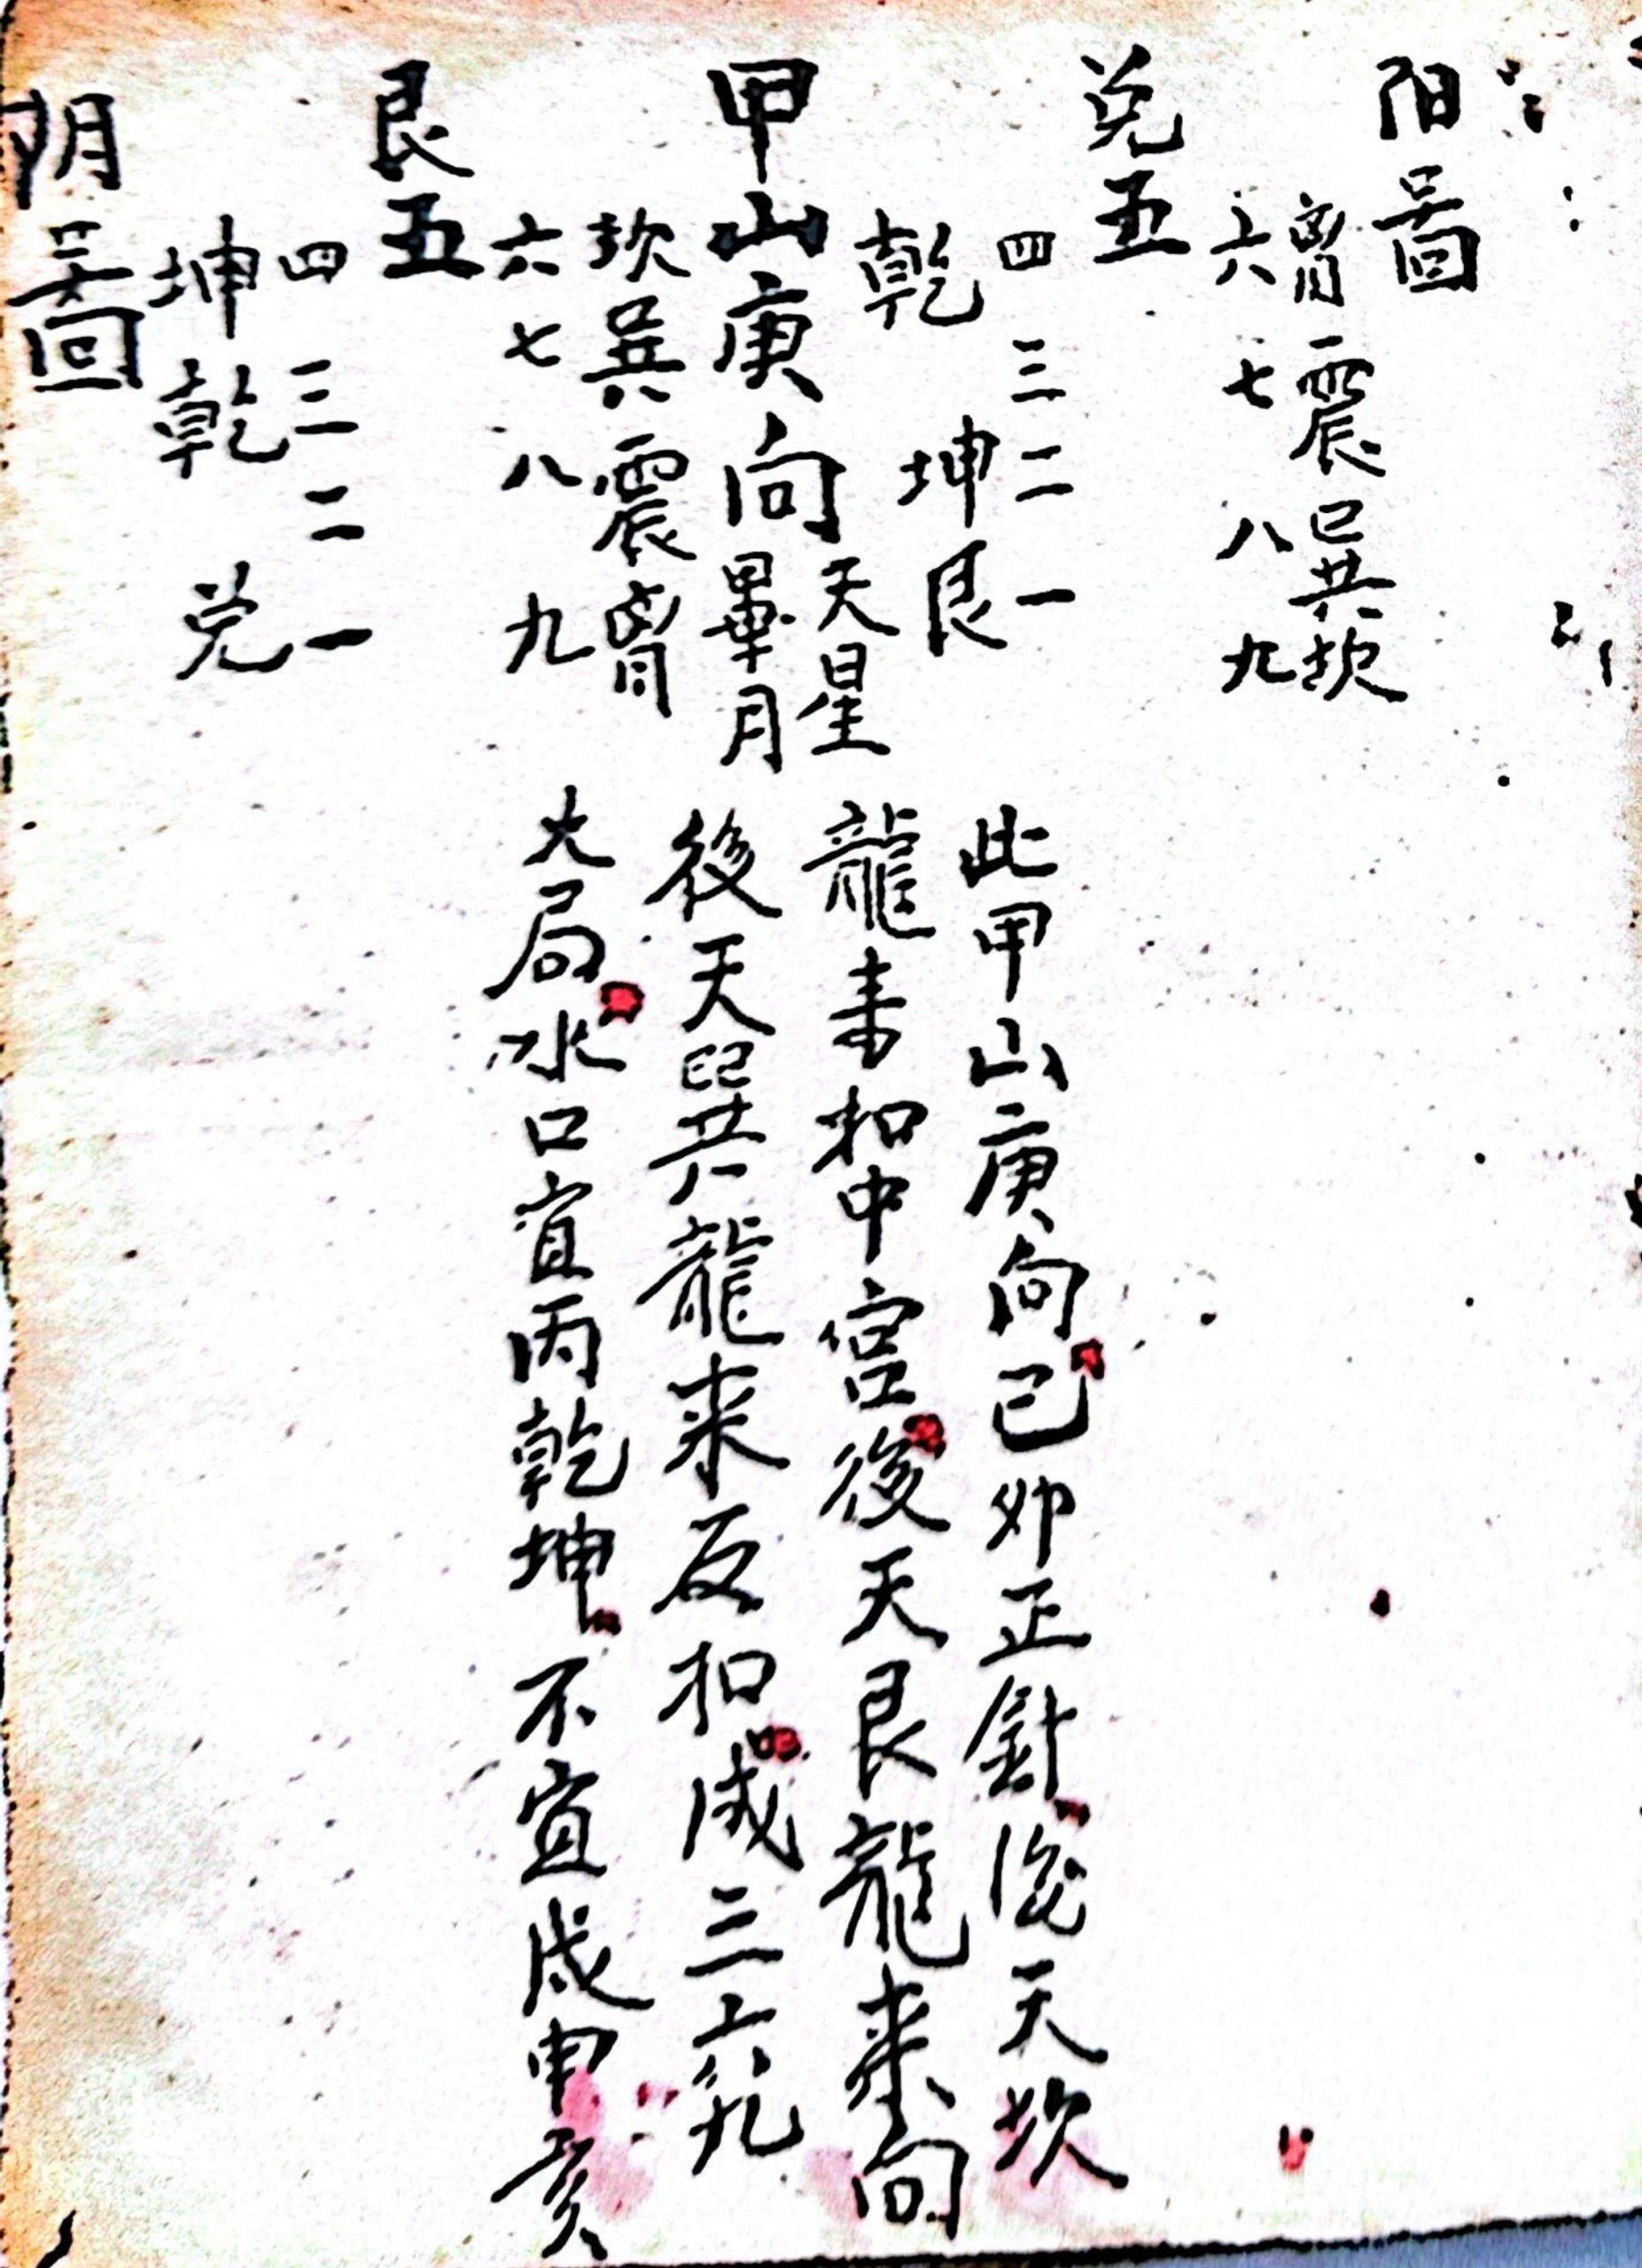 阳啚
离震巽坎
六七八九
兑五
四三二一
乾坤艮
甲山庚向
天星
畢月
坎巽震离
六七八九
艮五
四三二一
坤乾兑
阴啚
此甲山庚向己卯正針後天坎
龍来扣中宮後天艮龍来向
後天巽龍来反扣成三六
大局水口宜丙乾坤不宜戌申亥